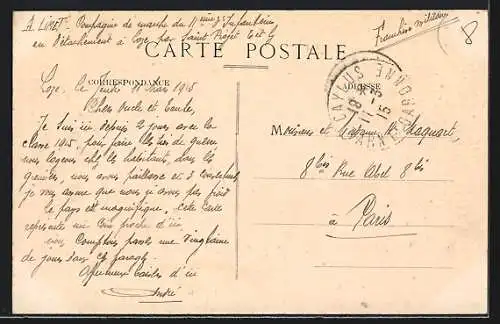 A. LINET - Compagnie de marche du 11ème d'Infanterie
en Détachement à Loze par Saint Projet T et G
Franchise militaire
8
CARTE POSTALE
CORRESPONDANCE
ADRESSE
CAYLUS
TARN & GARONNE
Loze, le Jeudi 11 Mars 1915
Chers Oncle et Tante,
Je suis ici depuis 2 jours avec la
classe 1915, pour faire les de guerre
nous logeons chez les habitants, dans les
greniers, nous avons paillasse et 3 couvertures
je vous assure que nous n'avons pas froid
Le pays est magnifique, cette carte
représente un coin proche d'ici
nous comptons passer une vingtaine
de jours dans ces parages.
Affectueux baisers d'ici
André
Monsieur et Madame
8bis Rue Abel 8bis
à Paris